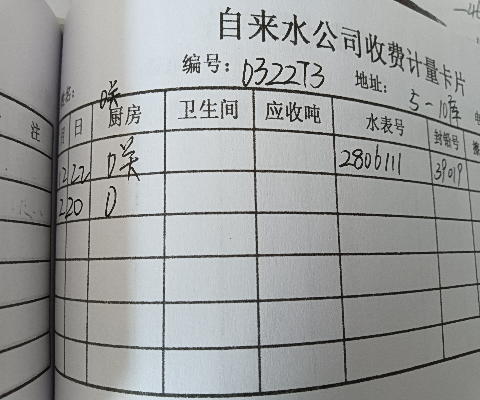 自来水公司收费计量卡片
编号: D322T3 地址: 5-10库
注 月 日 厨房 卫生间 应收吨 水表号 封铅号
12 22 0关 2806111 39019
2 20 0